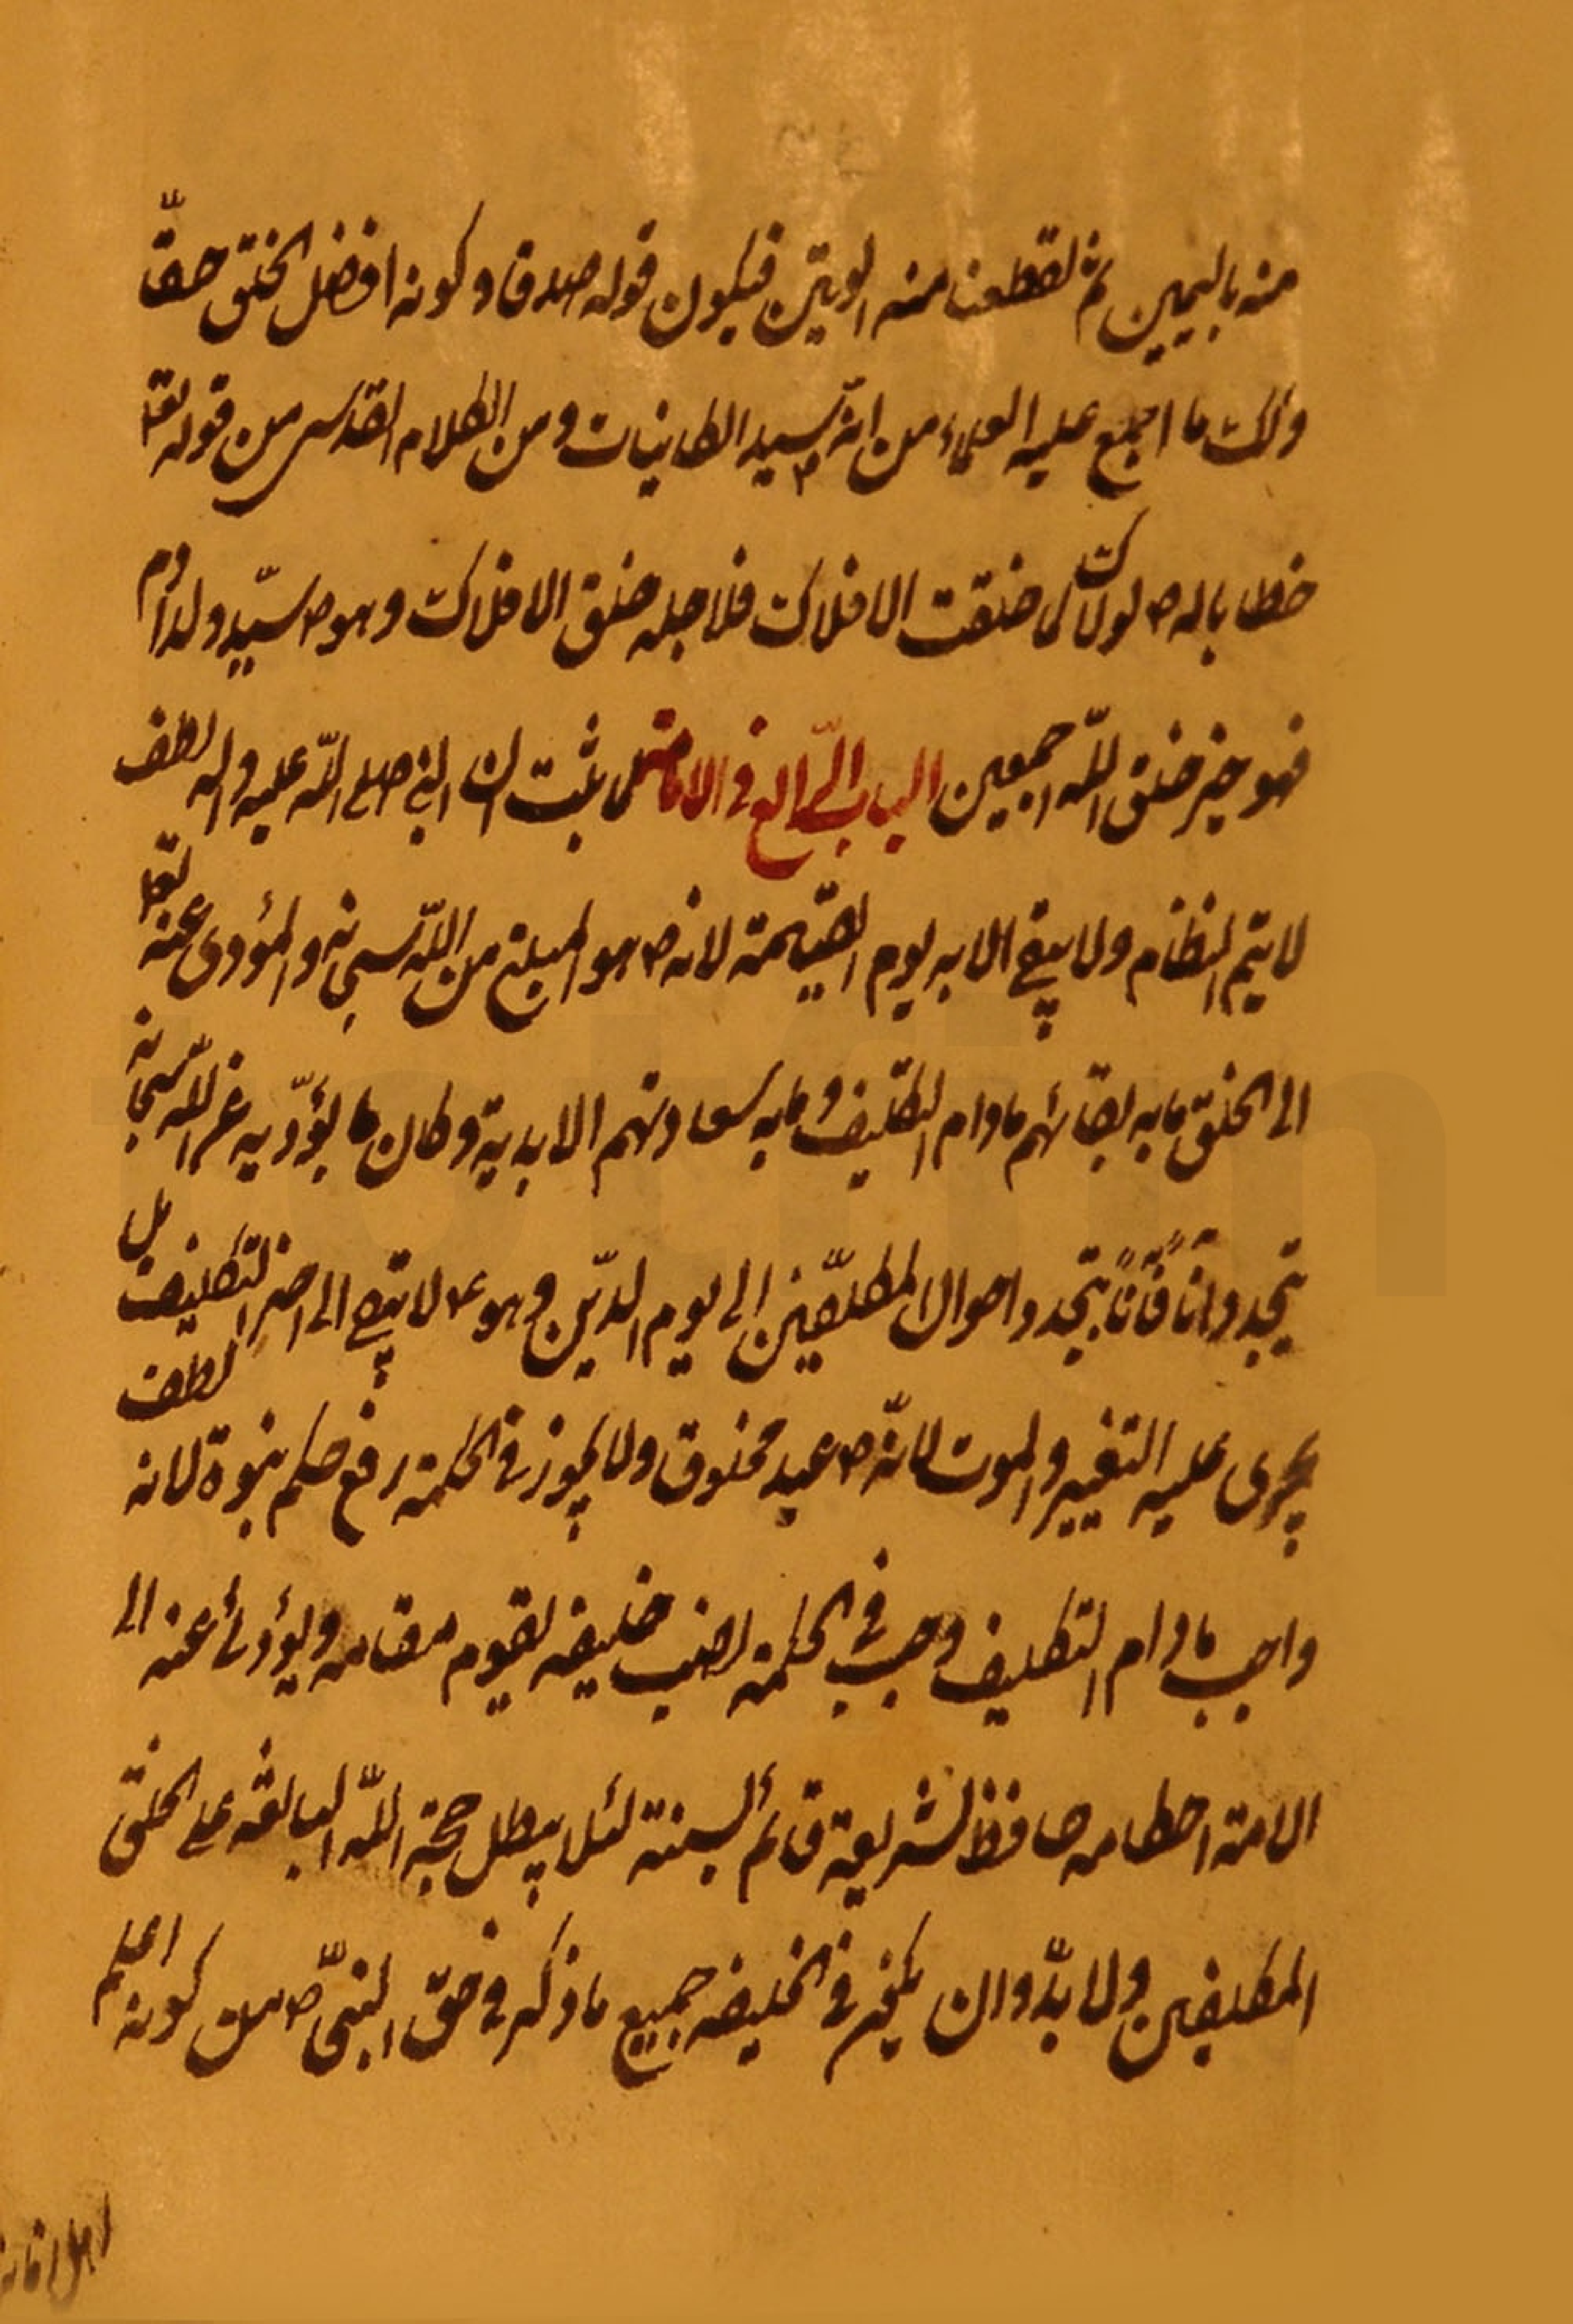 منه باليمين ثم لقطعنا منه الوتين فيكون قوله صدقا و كونه افضل الخلق حقّا
و لك ما اجمع عليه العلماء من انّه ص سيد الكاينات و من الكلام القدسى من قوله تعا
خطابا له ص لولاك لما خلقت الافلاك فلاجله خلق الافلاك و هو ص سيّد ولد ادم
فهو خير خلق اللّه اجمعين الباب الرّابع فى الامامة لما ثبت ان النبى صلى اللّه عليه و اله لطف
لا يتم النظام و لا يبقى الا به ليوم القيٰمة لانه ص هو المبلغ من اللّه سبحانه و المؤدى عنه تعا
الى الخلق ما به بقائهم مادام التكليف و ما به سعادتهم الابدية و كان ما يؤدّيه عن اللّه سبحانه
يتجدد اناً فاناً بتجدد احوال المكلّفين الى يوم الدّين و هو ع لا يبقى الى اخر التكليف بل
يجرى عليه التغيير و الموت لانّه ص عبد مخلوق و لا يجوز فى الحكمة رفع حكم نبوة لانه لطف
واجب مادام التكليف وجب فى الحكمة نصب خليفه يقوم مقامه و يؤدى عنه الى
الامة احكامه حافظ لشريعة قائم لسنته لئلا يبطل حجة اللّه البالغه على الخلق
المكلفين و لا بدّ و ان يكون فى الخليفه جميع ما ذكر فى حق النبىّ ص من كونه اعلم
اهل زمانه